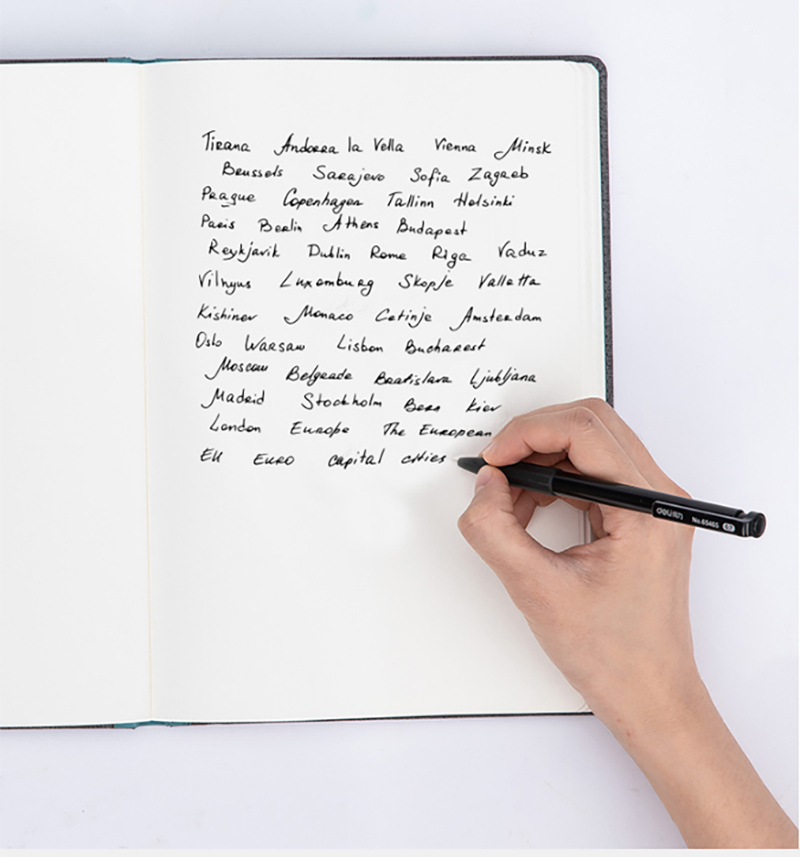 Tirana Andorra la Vella Vienna Minsk
Brussels Sarajevo Sofia Zagreb
Prague Copenhagen Tallinn Helsinki
Paris Berlin Athens Budapest
Reykjavik Dublin Rome Riga Vaduz
Vilnyus Luxemburg Skopje Valletta
Kishinev Monaco Cetinje Amsterdam
Oslo Warsaw Lisbon Bucharest
Moscow Belgrade Bratislava Ljubljana
Madrid Stockholm Bern Kiev
London Europe The European
EU EURO capital cities
deli No.6546S 0.7